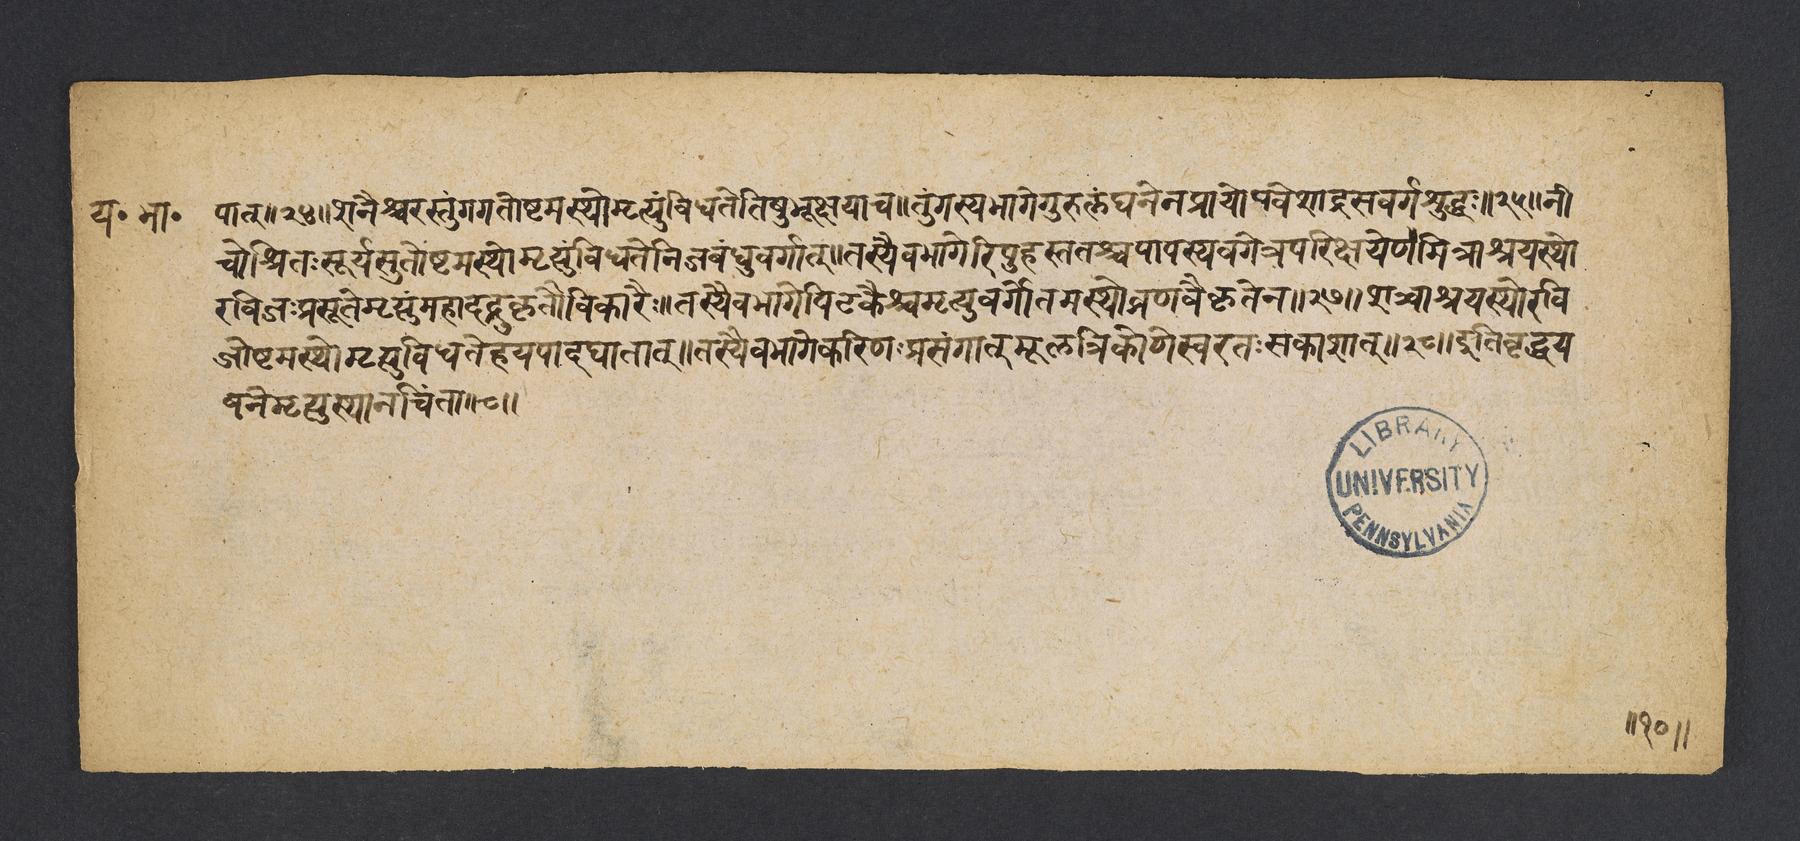 य॰ भा॰
पात्॥२४॥शनैश्चरस्तुंगगतोष्टमस्थोमृत्युंविधतेतिषुभूक्षयाच॥तुंगस्यभागेगुरुलंघनेनप्रायोपवेशाद्दसवर्गशुद्धः॥२५॥नी
चोश्रितःसूर्यसुतोष्टमस्थोमृत्युंविधतेनिजबंधुवर्गात्॥तस्यैवभागेरिपुहस्ततश्चपापस्यवर्गेत्रपरिक्षयेणमित्राश्रयस्थो
रविजःप्रसूतेमृत्युंमहादद्रुकृतौविकारैः॥तस्यैवभागेपिटकैश्चमृत्युवर्गोतमस्थोव्रणवैकृतेन॥२७॥शत्र्वाश्रयस्थोरवि
जोष्टमस्थोमृत्युविधतेहयपादघातात्॥तस्यैवभागेकरिणःप्रसंगात्मूलत्रिकोणेस्वरतःसकाशात्॥२८॥इतिवृद्धय
वनेमृत्युस्थानचिंता॥८॥
LIBRARY
UNIVERSITY
PENNSYLVANIA
॥१०॥